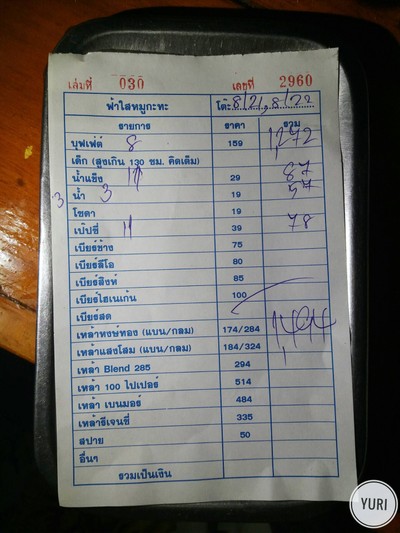 เล่มที่ 030 เลขที่ 2960
ฟ้าใสหมูกะทะ โต๊ะ 8/21, 8/22
รายการ ราคา รวม
บุฟเฟ่ต์ 8 159 1,272
เด็ก (สูงเกิน 130 ซม. คิดเต็ม)
น้ำแข็ง 29 87
3 น้ำ 3 19 57
โซดา 19
เป๊ปซี่ 11 39 78
เบียร์ช้าง 75
เบียร์ลีโอ 80
เบียร์สิงห์ 85
เบียร์ไฮเนเก้น 100
เบียร์สด
เหล้าหงษ์ทอง (แบน/กลม) 174/284 1,494
เหล้าแสงโสม (แบน/กลม) 184/324
เหล้า Blend 285 294
เหล้า 100 ไปเปอร์ 514
เหล้า เบนมอร์ 484
เหล้ารีเจนซี่ 335
สปาย 50
อื่นๆ
รวมเป็นเงิน
YURI